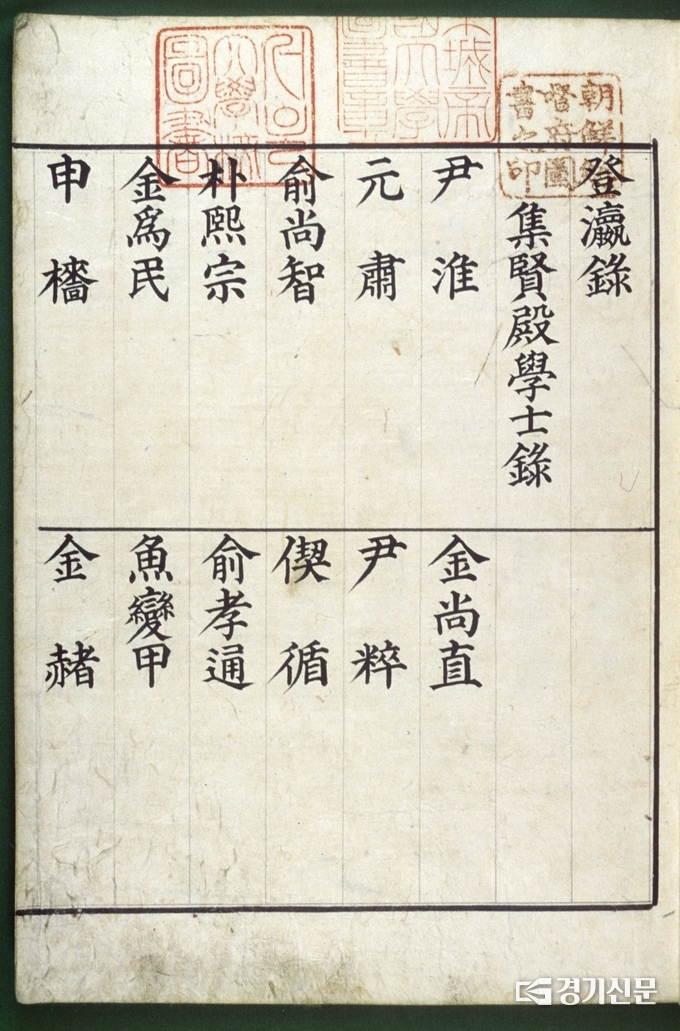 登瀛錄
集賢殿學士錄
尹淮
元肅
俞尚智
朴熙宗
金爲民
申檣
金尚直
尹粹
偰循
俞孝通
魚變甲
金赭
朝鮮總
督府圖
書之印
城帝
國大學
圖書章
大學校
圖書
경기신문